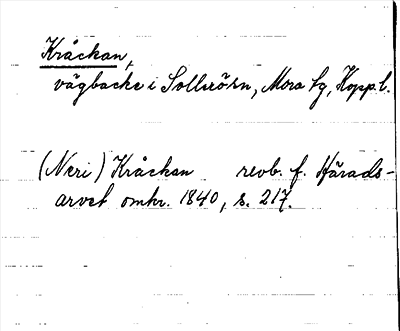 Kråckan,
vägbacke i Sollerön, Mora tg, Kopp. l.
(Neri) Kråckan revb. f. Härads-
arvet omkr. 1840, s. 217.